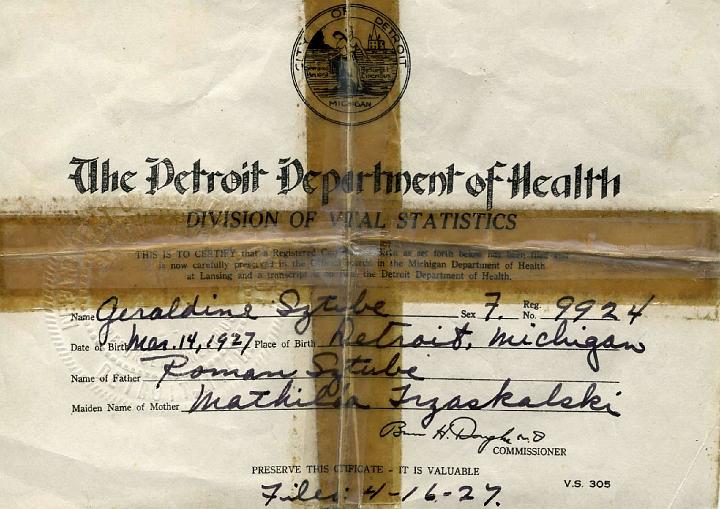 CITY OF DETROIT
MICHIGAN
The Detroit Department of Health
DIVISION OF VITAL STATISTICS
THIS IS TO CERTIFY that a Registered Birth as set forth below has been filed and
is now carefully preserved in the Official Records in the Michigan Department of Health
at Lansing and a transcript is on file the Detroit Department of Health.
Name Geraldine Sztube Sex F. Reg. No. 9924
Date of Birth Mar. 14, 1927 Place of Birth Detroit, Michigan
Name of Father Roman Sztube
Maiden Name of Mother Mathilda Trzaskalski
M.D.
COMMISSIONER
PRESERVE THIS CERTIFICATE - IT IS VALUABLE
V.S. 305
Filed: 4-16-27.